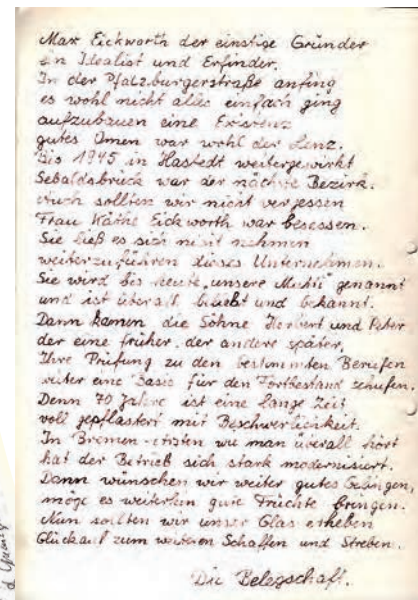 Max Eickworth der einstige Gründer
ein Idealist und Erfinder.
In der Pfalzburgerstraße anfing
es wohl nicht alles einfach ging
aufzubauen eine Existenz
gutes Omen war wohl der Lenz.
Bis 1945 in Hastedt weitergewirkt
Sebaldsbrück war der nächste Bezirk.
Auch sollten wir nicht vergessen
Frau Käthe Eickworth war besessen.
Sie ließ es sich nicht nehmen
weiterzuführen dieses Unternehmen.
Sie wird bis heute "unsere genannt
und ist überall beliebt und bekannt.
Dann kamen die Söhne Herbert und Peter
der eine früher, der andere später,
Ihre Prüfung zu den bestimmten Berufen
eine Basis für den Fortbestand schufen.
Denn 70 Jahre ist eine lange Zeit
voll gepflastert mit Beschwerlichkeit.
In Bremen wie man überall hört
hat der Betrieb sich stark modernisiert.
Dann wünschen wir weiter gutes Gelingen,
möge es weiterhin gute Früchte bringen.
Nun sollten wir unser Glas erheben
Glückauf zum weiteren Schaffen und Streben.
Die Belegschaft.